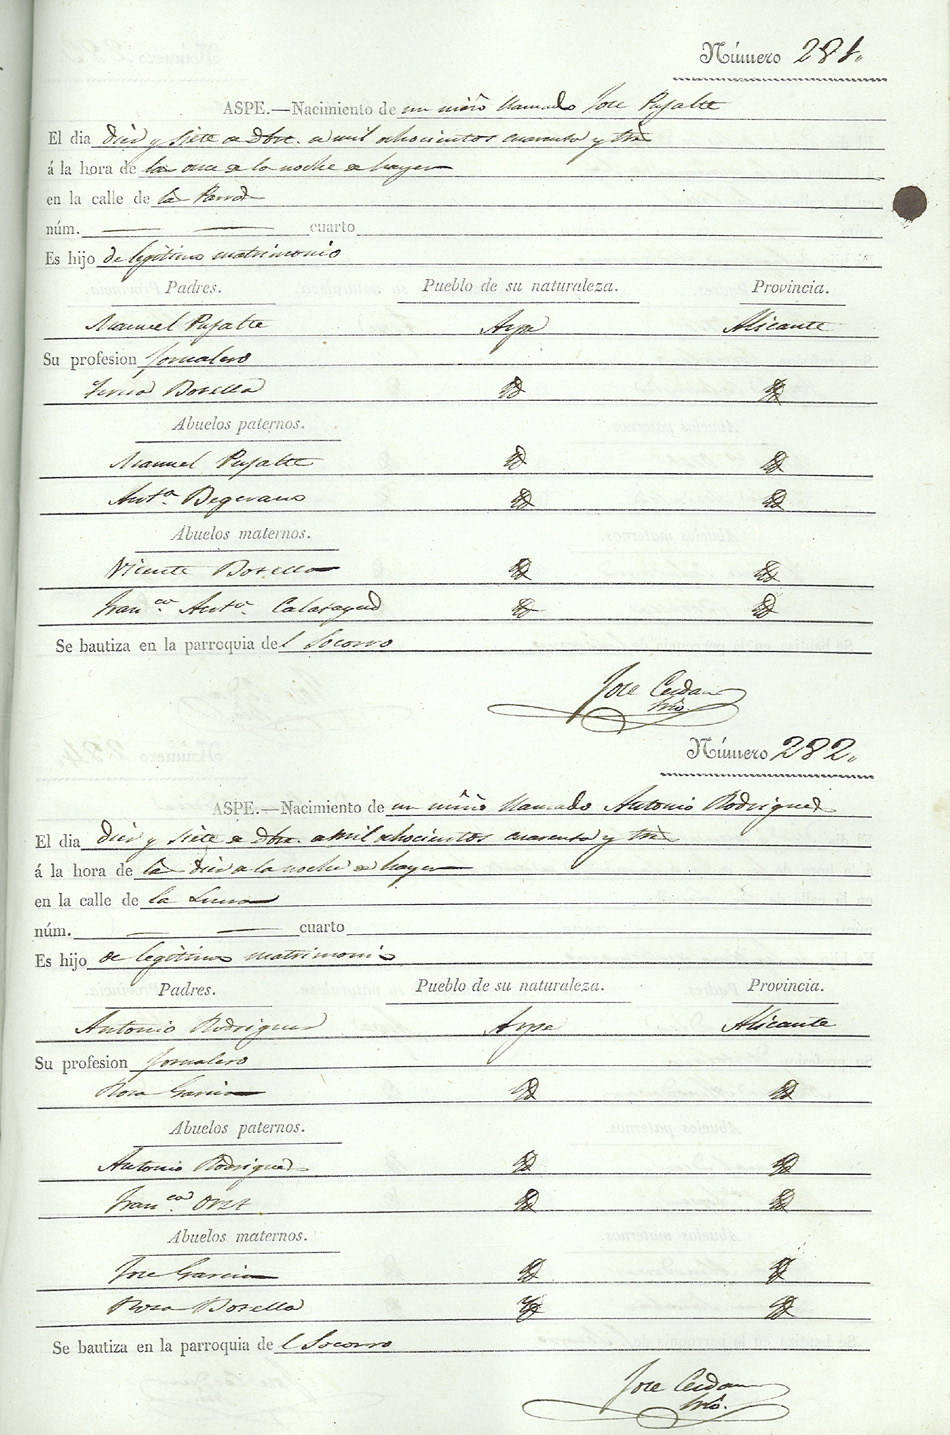 Número 281.
ASPE.—Nacimiento de un niño llamado Jose Pujalte
El dia diez y siete a Dbre. a mil ochocientos cuarenta y tres
á la hora de la once a la noche de hayer
en la calle de la Parra
núm. cuarto
Es hijo de legitimo matrimonio
Padres. Pueblo de su naturaleza. Provincia.
Manuel Pujalte Aspe Alicante
Su profesion Jornalero
Botella
Abuelos paternos.
Manuel Pujalte
Anta.
Abuelos maternos.
Vicente Botella
Franca. Anta. Calatayud
Se bautiza en la parroquia del Socorro
Jose Cerdan
Srio.
Número 282.
ASPE.—Nacimiento de un niño llamado Antonio Rodriguez
El dia diez y siete a Dbre. a mil ochocientos cuarenta y tres
á la hora de la diez a la noche de hayer
en la calle de la Luna
núm. cuarto
Es hijo de legitimo matrimonio
Padres. Pueblo de su naturaleza. Provincia.
Antonio Rodriguez Aspe Alicante
Su profesion Jornalero
Rosa Garcia
Abuelos paternos.
Antonio Rodriguez
Franca.
Abuelos maternos.
Jose Garcia
Rosa Botella
Se bautiza en la parroquia del Socorro
Jose Cerdan
Srio.